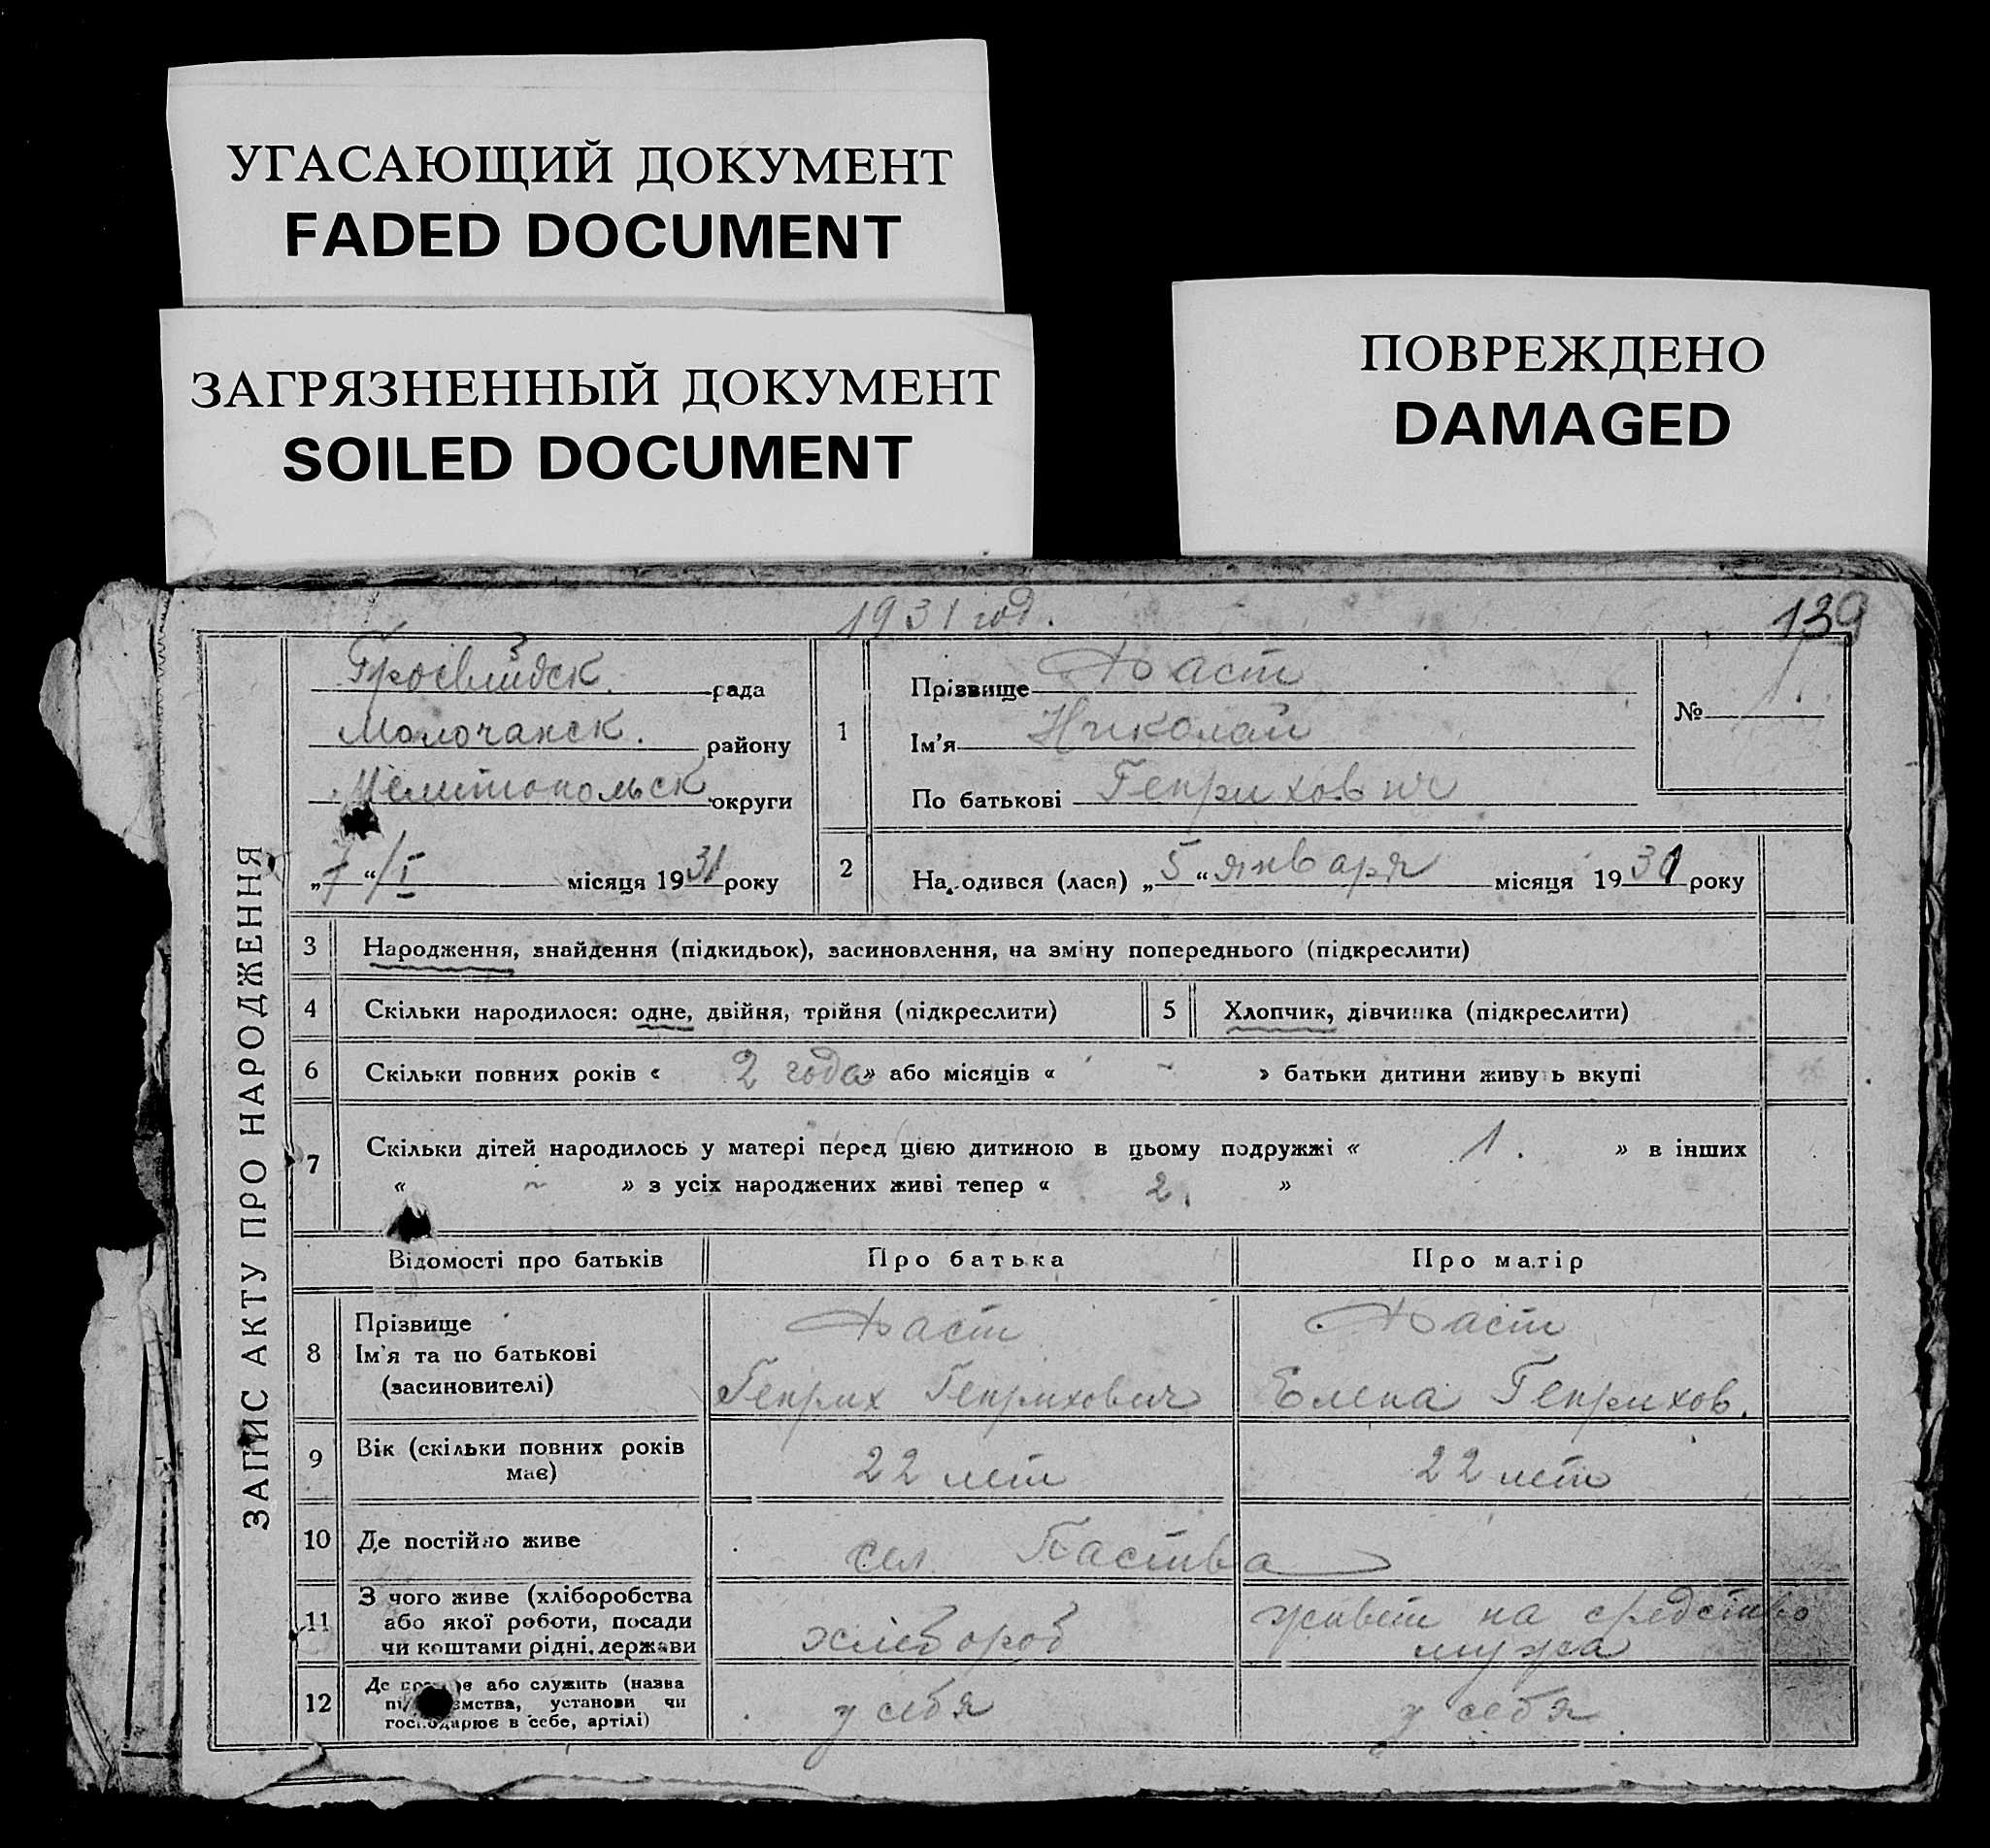 УГАСАЮЩИЙ ДОКУМЕНТ
FADED DOCUMENT
ЗАГРЯЗНЕННЫЙ ДОКУМЕНТ
SOILED DOCUMENT
ПОВРЕЖДЕНО
DAMAGED
1931 год.
139
ЗАПИС АКТУ ПРО НАРОДЖЕННЯ
рада
Молочанск. району
Мелитопольск округи
„7“/I місяця 1931 року
1
Прізвище
Ім'я Николай
По батькові Генрихович
№ 1.
2
Народився (лася) „5“ января місяця 1931 року
3 Народження, знайдення (підкидьок), засиновлення, на зміну попереднього (підкреслити)
4 Скільки народилося: одне, двійня, трійня (підкреслити)
5 Хлопчик, дівчинка (підкреслити)
6 Скільки повних років « 2 года » або місяців « ~ » батьки дитини живуть вкупі
7 Скільки дітей народилось у матері перед цією дитиною в цьому подружжі « 1. » в інших
« ~ » з усіх народжених живі тепер « 2. »
Відомості про батьків
Про батька
Про матір
8
Прізвище
Ім'я та по батькові
(засиновителі)
Генрих Генрихович
Елена Генрихов.
9
Вік (скільки повних років
має)
22 лет
22 лет
10 Де постійно живе
сел. Паства
11
З чого живе (хліборобства
або якої роботи, посади
чи коштами рідні, держави
хлебороб
живет на средство
мужа
12
Де працює або служить (назва
підприємства, установи чи
господарює в себе, артілі)
у себя
у себя